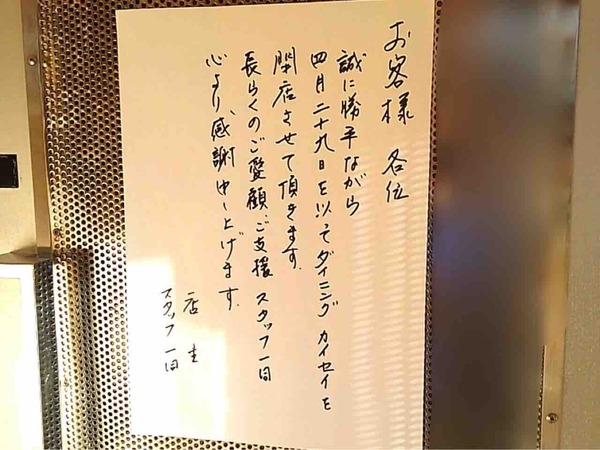 お客様 各位
誠に勝手ながら
四月二十九日を以てダイニング カイセイを
閉店させて頂きます。
長らくのご愛顧、ご支援 スタッフ一同
心より感謝申し上げます。
店主
スタッフ一同